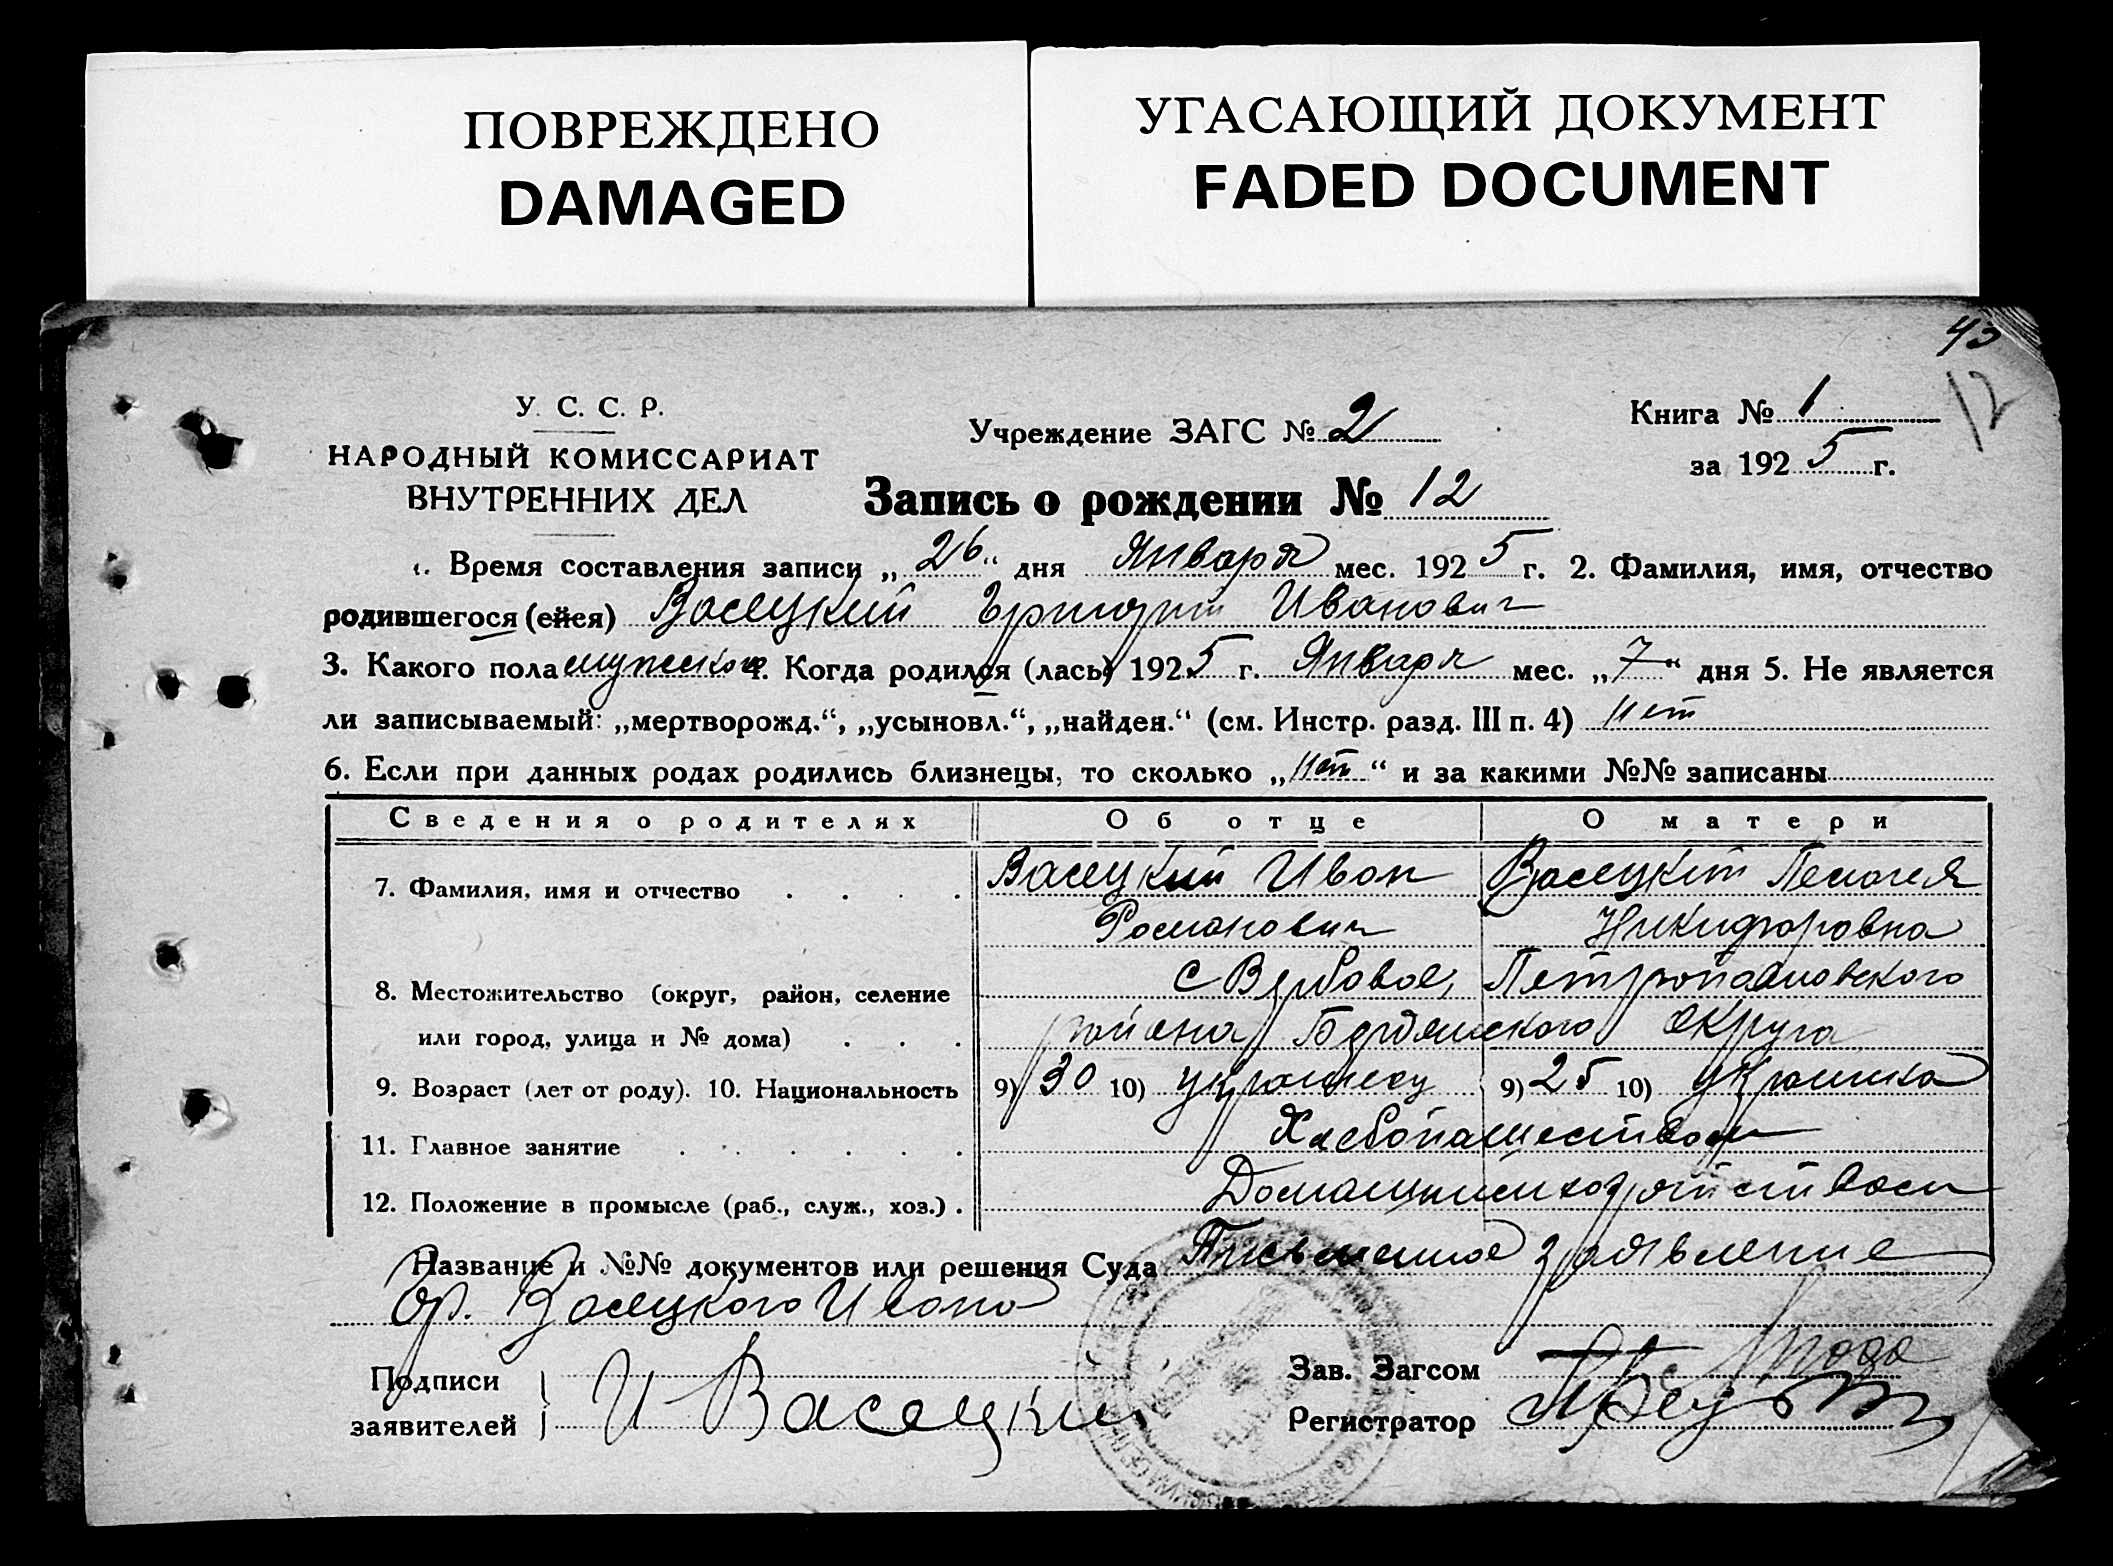 ПОВРЕЖДЕНО
DAMAGED
УГАСАЮЩИЙ ДОКУМЕНТ
FADED DOCUMENT
43
12
У. С. С. Р.
НАРОДНЫЙ КОМИССАРИАТ
ВНУТРЕННИХ ДЕЛ
Учреждение ЗАГС № 2
Книга № 1
за 1925 г.
Запись о рождении № 12
1. Время составления записи „26“ дня Января мес. 1925 г. 2. Фамилия, имя, отчество
родившегося (ейся) Васецкий Григорий Иванович
3. Какого пола мужского 4. Когда родился (лась) 1925 г. Января мес. „7“ дня 5. Не является
ли записываемый: „мертворожд.“, „усыновл.“, „найден.“ (см. Инстр. разд. III п. 4) нет
6. Если при данных родах родились близнецы, то сколько „нет“ и за какими №№ записаны
Сведения о родителях Об отце О матери
7. Фамилия, имя и отчество Васецкий Иван Васецкий Пелагея
Романович Никифоровна
8. Местожительство (округ, район, селение с Вербовое, Петропавловского
или город, улица и № дома) района Бердянского округа
9. Возраст (лет от роду). 10. Национальность 9) 30 10) украинец 9) 25 10) украинка
11. Главное занятие Хлебопашеством
12. Положение в промысле (раб., служ., хоз.) Домашним хозяйством
Название и №№ документов или решения Суда Письменное заявление
Гр. Васецкого Ивана
Подписи
заявителей
И Васецкий
Зав. Загсом
Регистратор